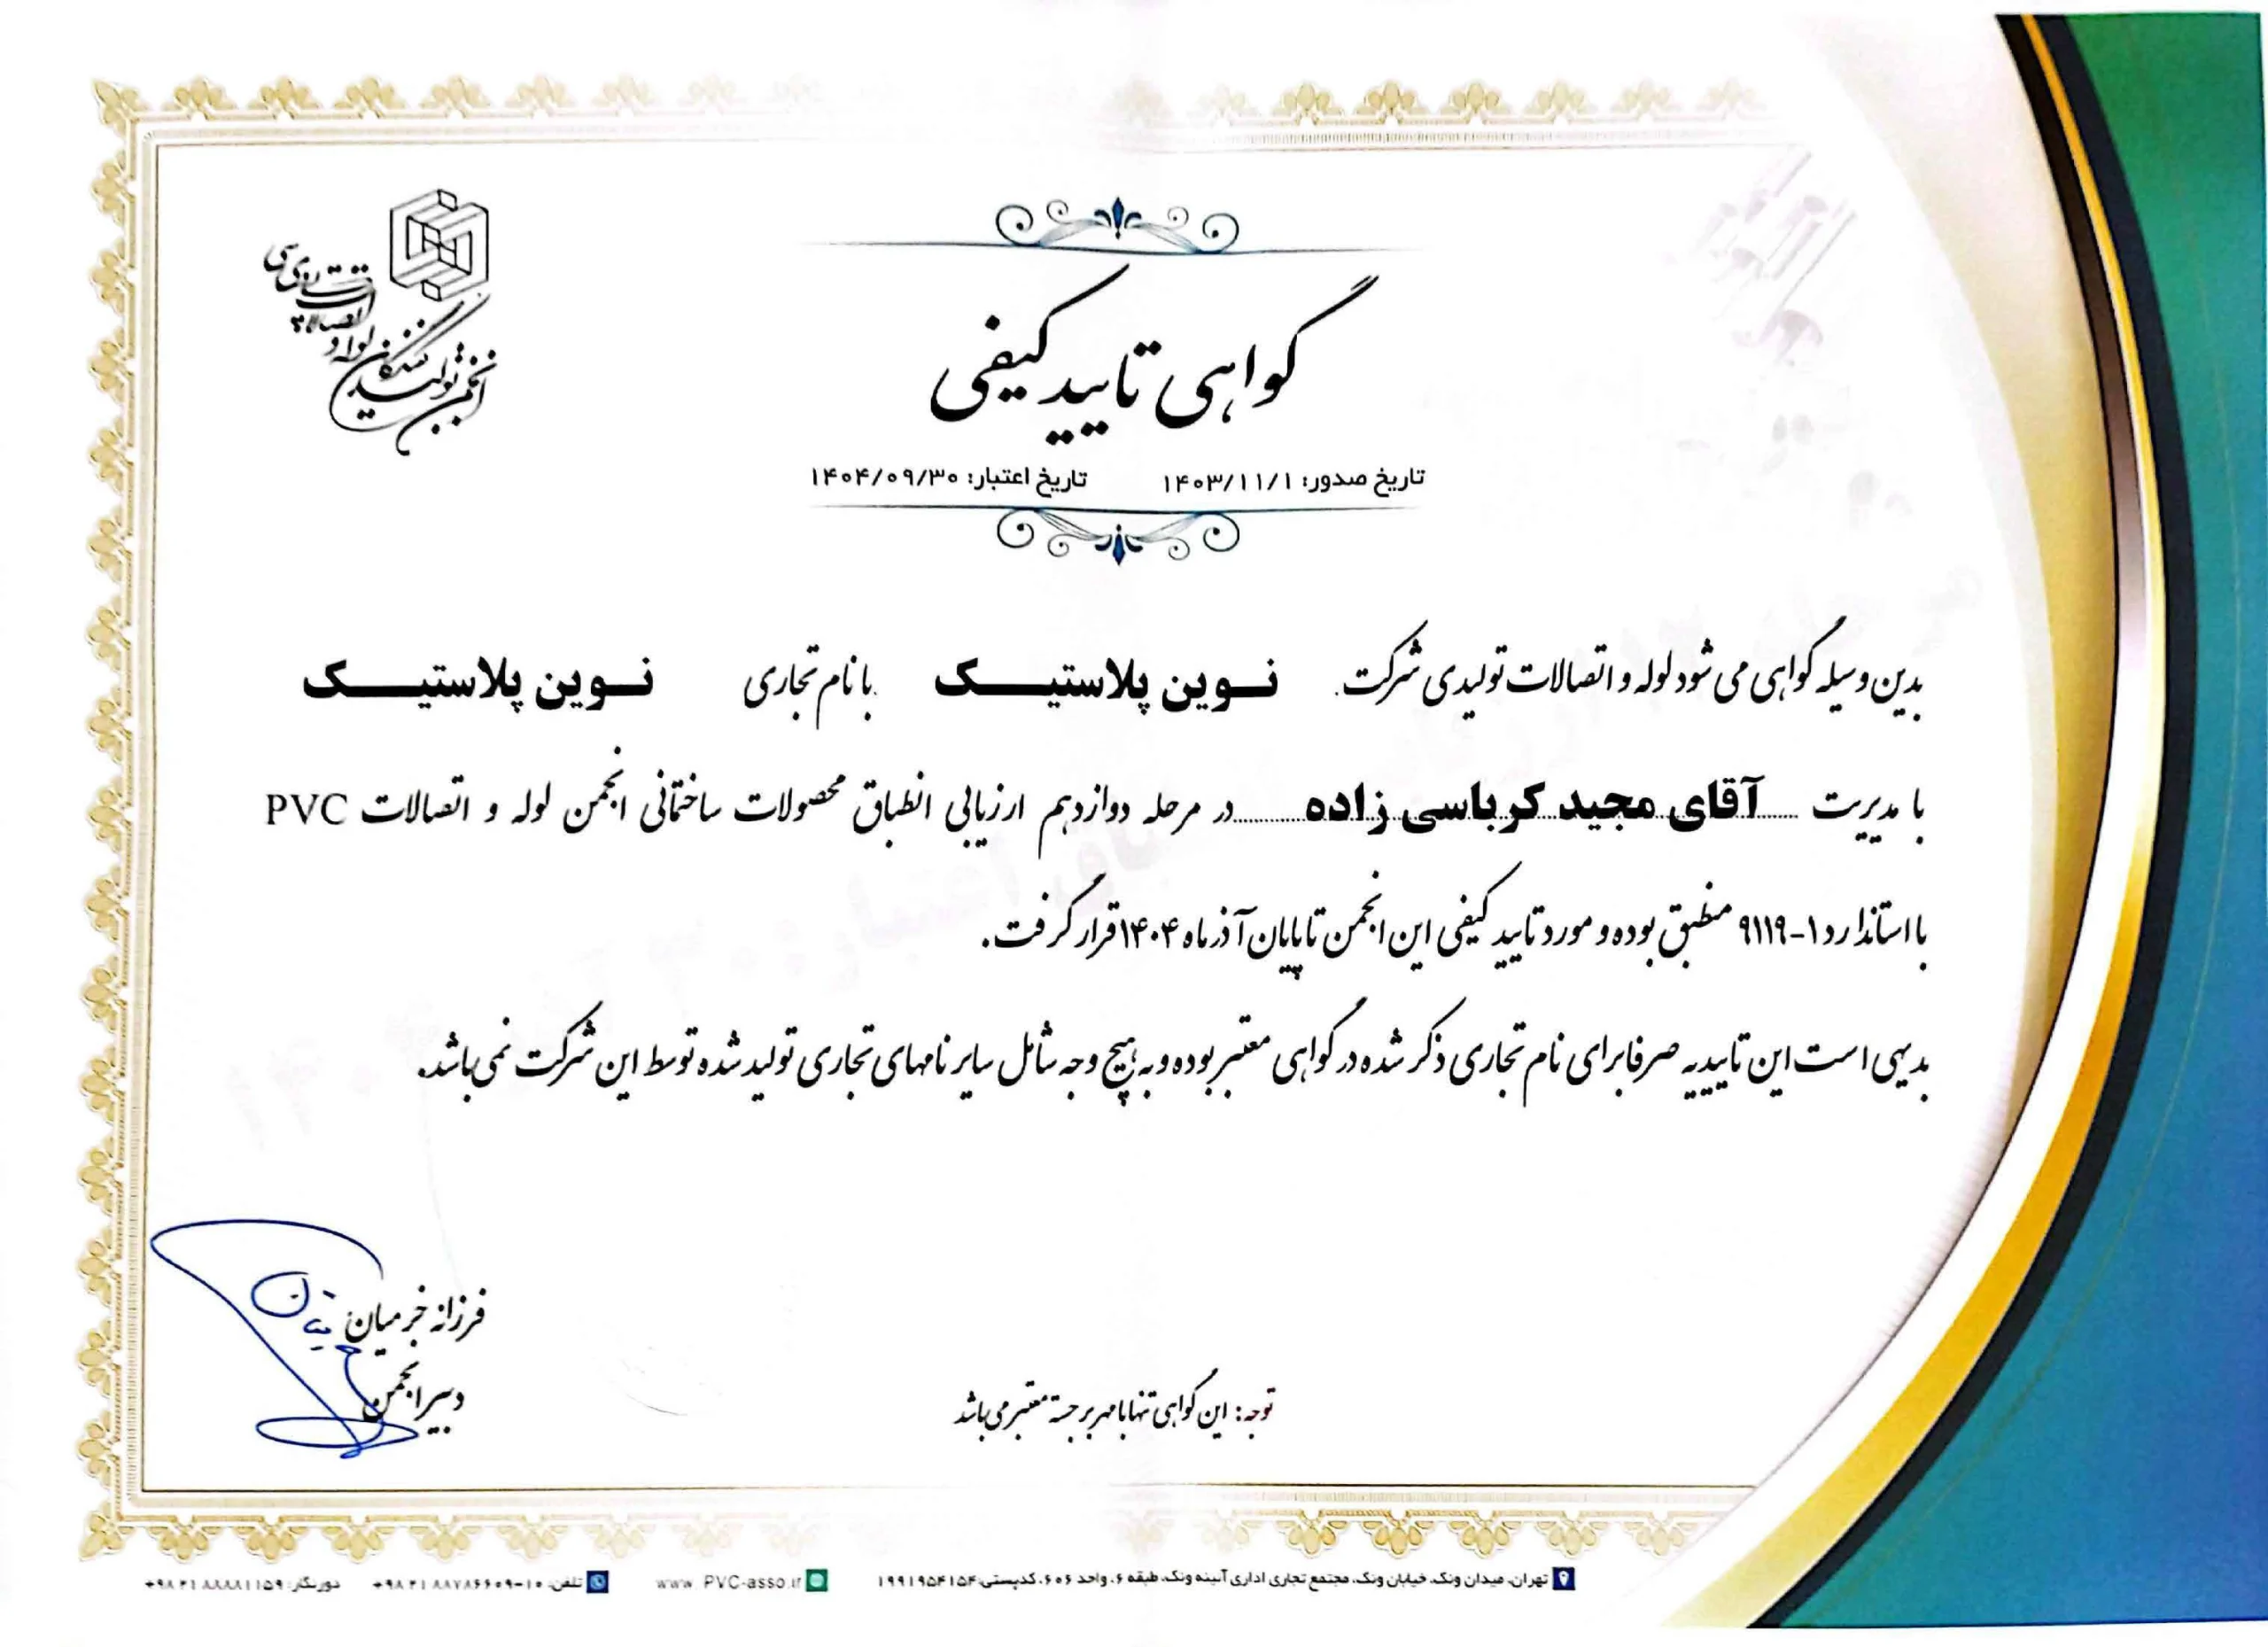 انجمن تولیدکنندگان لوله و اتصالات پی وی سی
گواهی تایید کیفی
تاریخ صدور: ۱۴۰۳/۱۱/۱ تاریخ اعتبار: ۱۴۰۴/۰۹/۳۰
بدین وسیله گواهی می شود لوله و اتصالات تولیدی شرکت. نوین پلاستیک با نام تجاری نوین پلاستیک
با مدیریت آقای مجید کرباسی زاده در مرحله دوازدهم ارزیابی انطباق محصولات ساختمانی انجمن لوله و اتصالات PVC
با استاندارد ۱-۹۱۱۹ منطبق بوده و مورد تایید کیفی این انجمن تا پایان آذر ماه ۱۴۰۴ قرار گرفت.
بدیهی است این تاییدیه صرفا برای نام تجاری ذکر شده در گواهی معتبر بوده و به هیچ وجه شامل سایر نامهای تجاری تولید شده توسط این شرکت نمی باشد.
فرزانه خرمیان
دبیر انجمن
توجه: این گواهی تنها با مهر برجسته معتبر می باشد
تهران، میدان ونک، خیابان ونک، مجتمع تجاری اداری آئینه ونک، طبقه ۶، واحد ۶۰۶، کدپستی: ۱۹۹۱۹۵۴۱۵۴
www.PVC-asso.ir
تلفن: ۱۰-۸۸۷۸۶۶۰۹ ۲۱ ۹۸+
دورنگار: ۸۸۸۸۱۱۵۹ ۲۱ ۹۸+